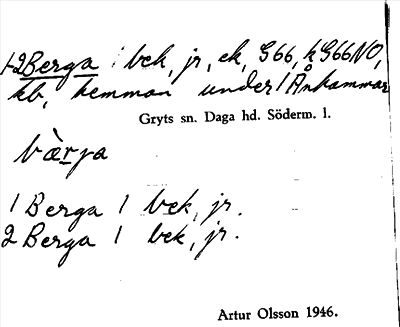 1-2 Berga 1 bek, jr, ek, G66, k G66NO,
kb, hemman under 1 Ånhammar
Gryts sn. Daga hd. Söderm. l.
bærja
1 Berga 1 bek, jr.
2 Berga 1 bek, jr.
Artur Olsson 1946.